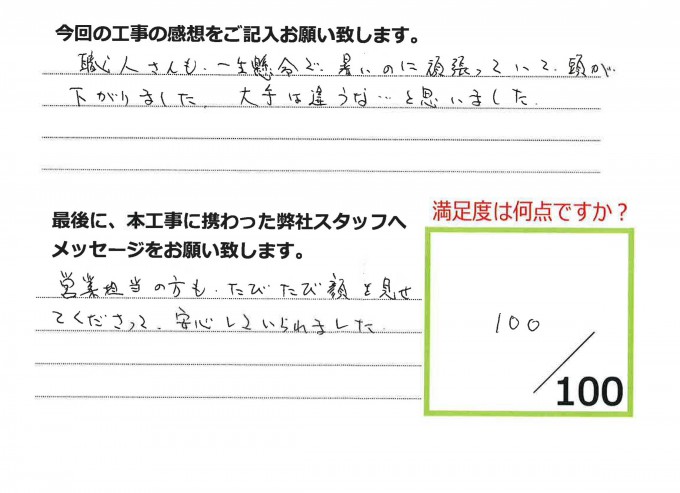 今回の工事の感想をご記入お願い致します。
職人さんも、一生懸命で、暑いのに頑張っていて、頭が
下がりました。大手は違うな…と思いました。
最後に、本工事に携わった弊社スタッフへ
メッセージをお願い致します。
営業担当の方も、たびたび顔を見せ
てくださって、安心していられました。
満足度は何点ですか？
100
100